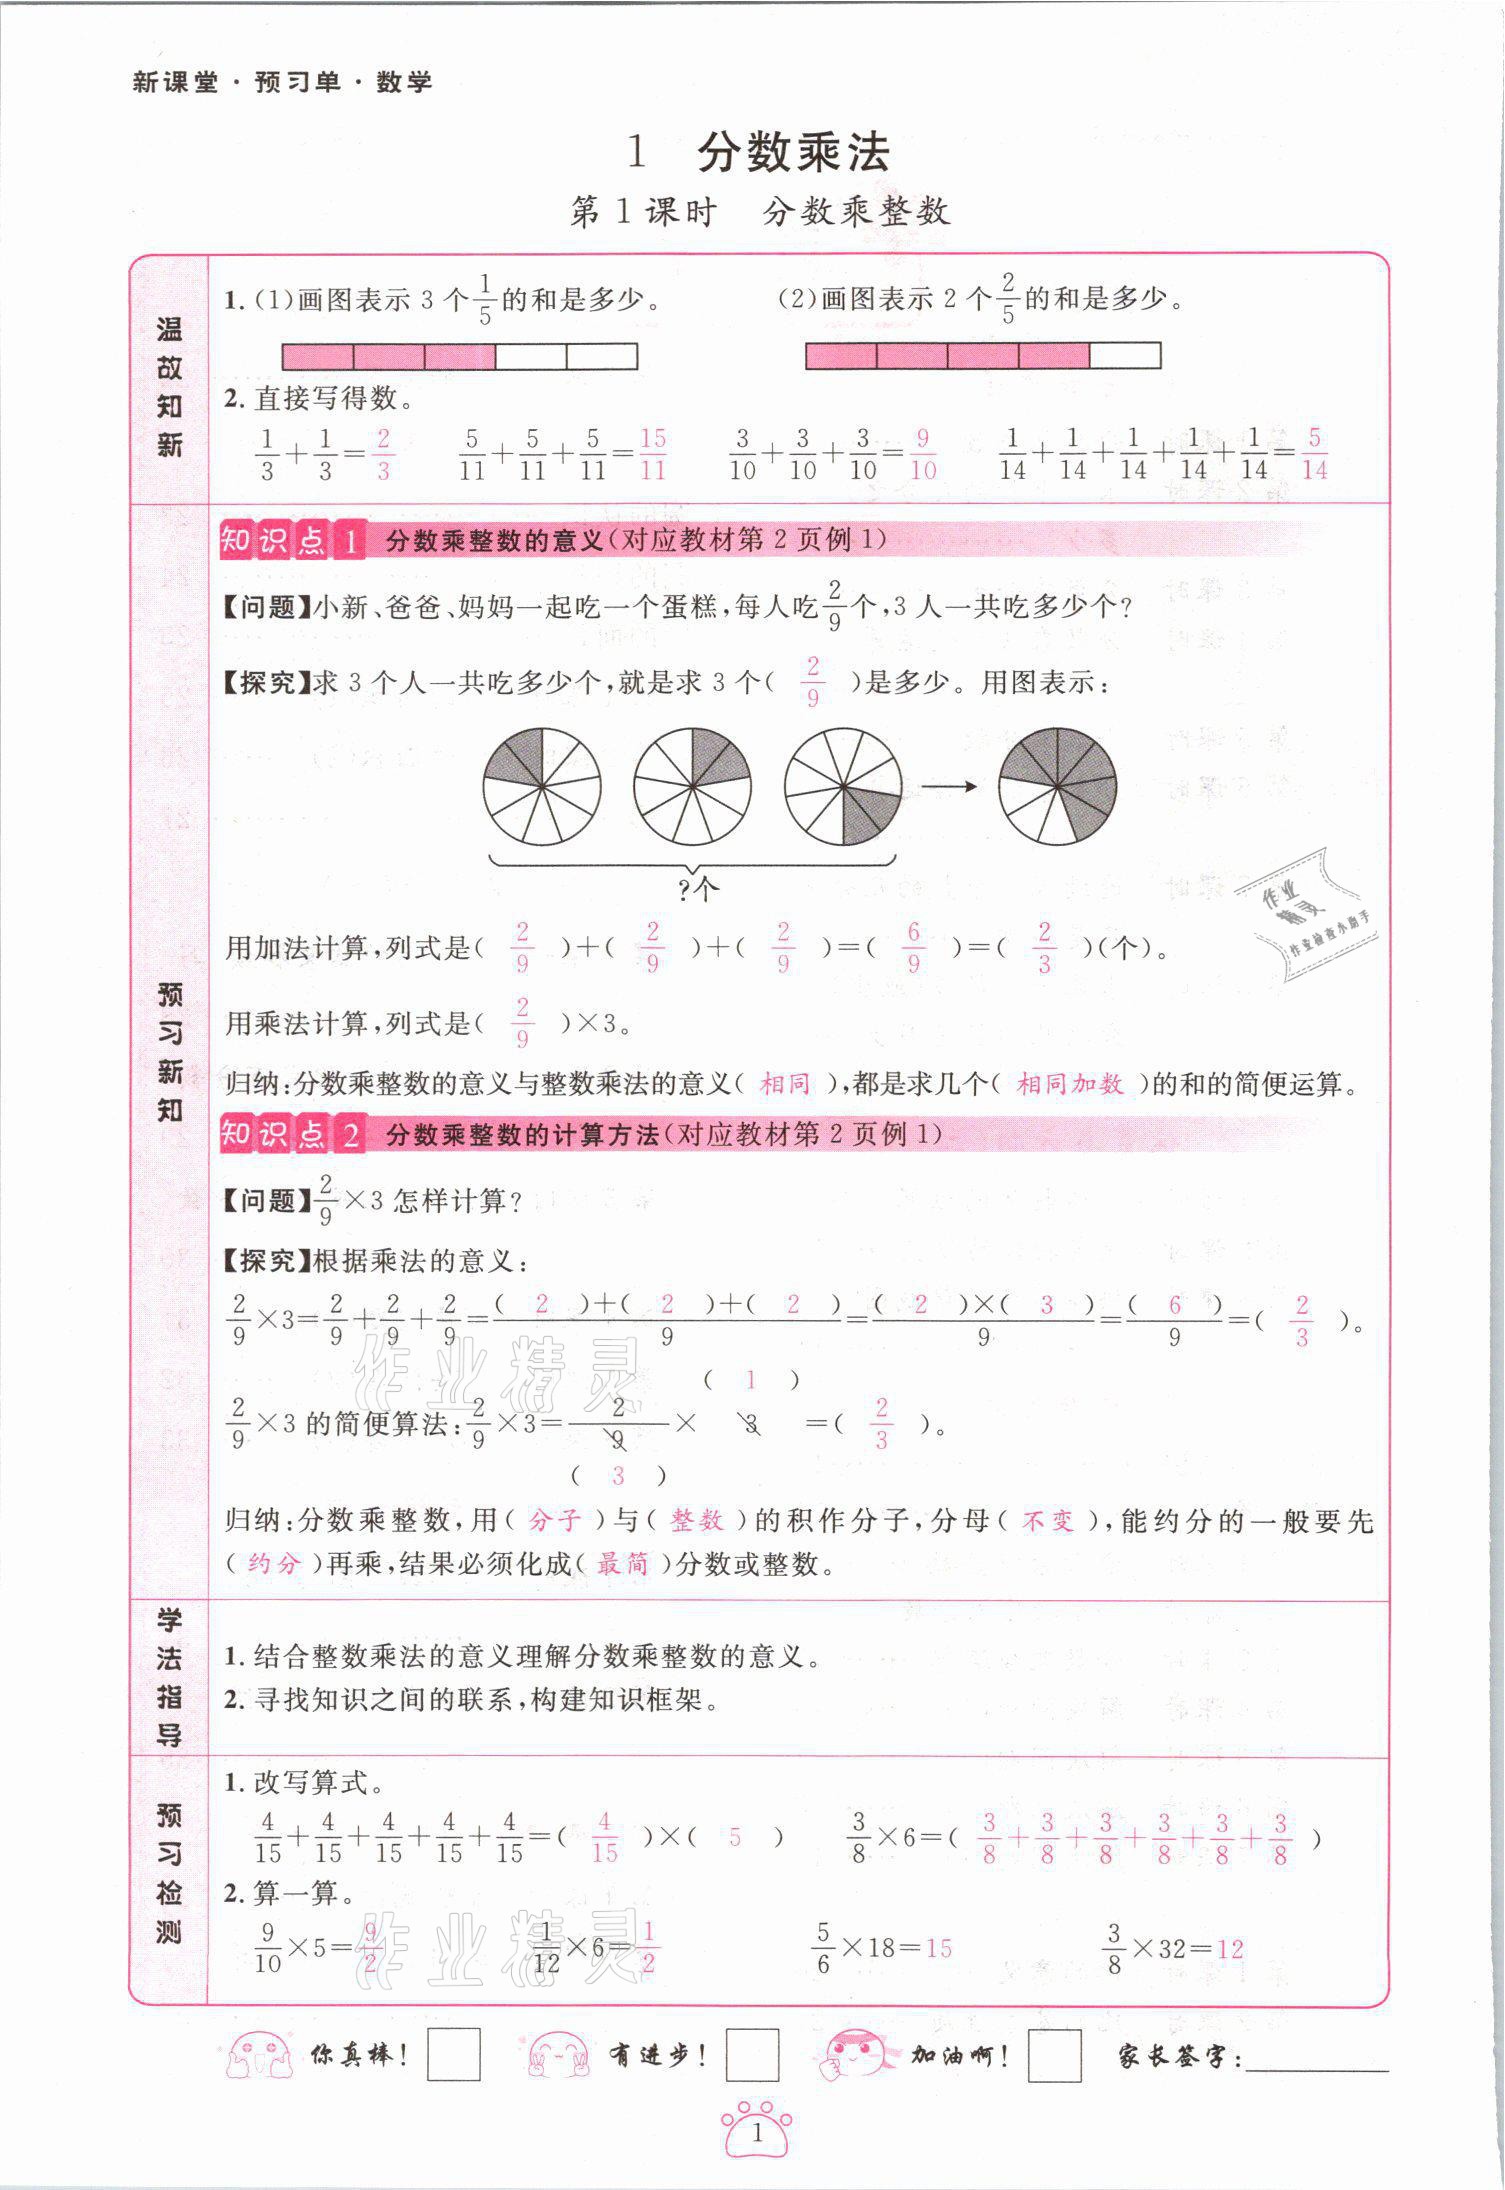 新课堂·预习单·数学
1 分数乘法
第1课时 分数乘整数
温故知新
1.(1)画图表示3个1/5的和是多少。 (2)画图表示2个2/5的和是多少。
2.直接写得数。
1/3+1/3=2/3 5/11+5/11+5/11=15/11 3/10+3/10+3/10=9/10 1/14+1/14+1/14+1/14+1/14=5/14
预习新知
知识点1 分数乘整数的意义(对应教材第2页例1)
【问题】小新、爸爸、妈妈一起吃一个蛋糕,每人吃2/9个,3人一共吃多少个?
【探究】求3个人一共吃多少个,就是求3个( 2/9 )是多少。用图表示:
?个
用加法计算,列式是( 2/9 )+( 2/9 )+( 2/9 )=( 6/9 )=( 2/3 )(个)。
用乘法计算,列式是( 2/9 )×3。
归纳:分数乘整数的意义与整数乘法的意义( 相同 ),都是求几个( 相同加数 )的和的简便运算。
知识点2 分数乘整数的计算方法(对应教材第2页例1)
【问题】2/9×3怎样计算?
【探究】根据乘法的意义:
2/9×3=2/9+2/9+2/9=(( 2 )+( 2 )+( 2 ))/9=(( 2 )×( 3 ))/9=( 6 )/9=( 2/3 )。
( 1 )
2/9×3的简便算法:2/9×3=2/9×3=( 2/3 )。
( 3 )
归纳:分数乘整数,用( 分子 )与( 整数 )的积作分子,分母( 不变 ),能约分的一般要先
( 约分 )再乘,结果必须化成( 最简 )分数或整数。
学法指导
1.结合整数乘法的意义理解分数乘整数的意义。
2.寻找知识之间的联系,构建知识框架。
预习检测
1.改写算式。
4/15+4/15+4/15+4/15+4/15=( 4/15 )×( 5 ) 3/8×6=( 3/8+3/8+3/8+3/8+3/8+3/8 )
2.算一算。
9/10×5=9/2 1/12×6=1/2 5/6×18=15 3/8×32=12
你真棒! 有进步! 加油啊! 家长签字:
1
作业精灵
作业检查小助手
作业精灵
作业精灵